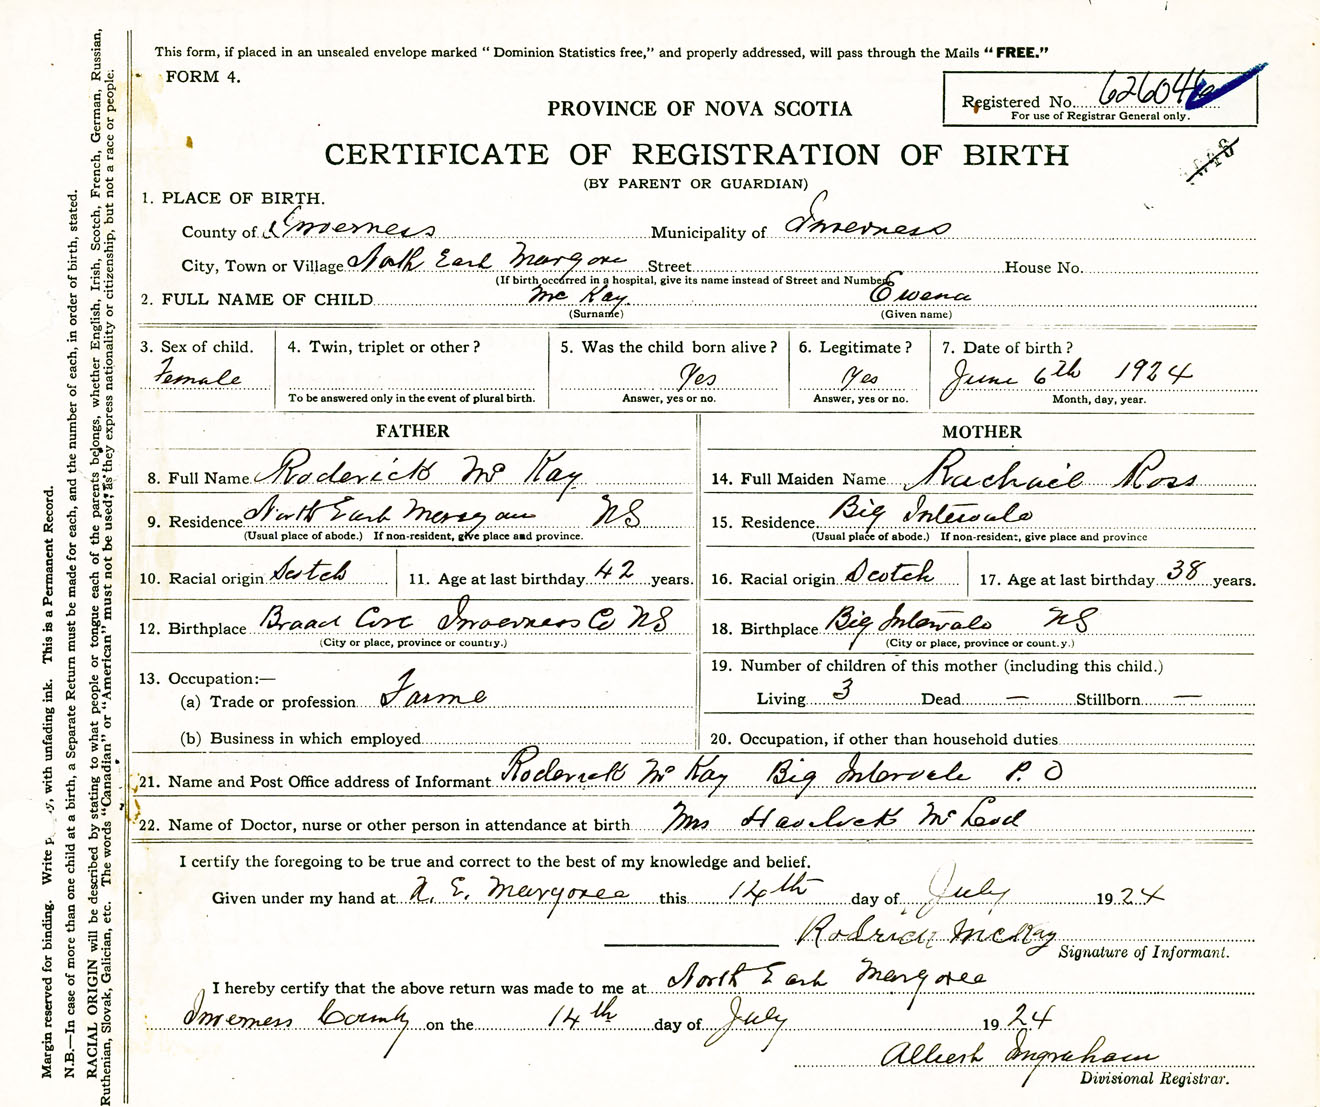 This form, if placed in an unsealed envelope marked “Dominion Statistics free,” and properly addressed, will pass through the Mails “FREE.”
FORM 4.
Registered No. 62604
For use of Registrar General only.
PROVINCE OF NOVA SCOTIA
CERTIFICATE OF REGISTRATION OF BIRTH
(BY PARENT OR GUARDIAN)
1. PLACE OF BIRTH.
County of Inverness Municipality of Inverness
City, Town or Village North East Margaree Street House No.
(If birth occurred in a hospital, give its name instead of Street and Number)
2. FULL NAME OF CHILD Mc Kay Ewena
(Surname) (Given name)
3. Sex of child. 4. Twin, triplet or other? 5. Was the child born alive? 6. Legitimate? 7. Date of birth?
Female Yes Yes June 6th 1924
To be answered only in the event of plural birth. Answer, yes or no. Answer, yes or no. Month, day, year.
FATHER
8. Full Name Roderick Mc Kay
9. Residence North East NS
(Usual place of abode.) If non-resident, give place and province.
10. Racial origin Scotch 11. Age at last birthday 42 years.
12. Birthplace Broad Cove Inverness Co NS
(City or place, province or county.)
13. Occupation:—
(a) Trade or profession Farme
(b) Business in which employed
MOTHER
14. Full Maiden Name Rachail Ross
15. Residence Big Intervale
(Usual place of abode.) If non-resident, give place and province
16. Racial origin Scotch 17. Age at last birthday 38 years.
18. Birthplace Big Intervale NS
(City or place, province or county.)
19. Number of children of this mother (including this child.)
Living 3 Dead — Stillborn —
20. Occupation, if other than household duties
21. Name and Post Office address of Informant Roderick Mc Kay Big Intervale P. O
22. Name of Doctor, nurse or other person in attendance at birth Mrs Havelock Mc Leod
I certify the foregoing to be true and correct to the best of my knowledge and belief.
Given under my hand at N. E. Margaree this 14th day of July 1924
Rodrick McKay
Signature of Informant.
I hereby certify that the above return was made to me at North East Margaree
Inverness County on the 14th day of July 1924
Albert Ingraham
Divisional Registrar.
Margin reserved for binding. Write with unfading ink. This is a Permanent Record.
N.B.—In case of more than one child at a birth, a Separate Return must be made for each, and the number of each, in order of birth, stated.
RACIAL ORIGIN will be described by stating to what people or tongue each of the parents belongs, whether English, Irish, Scotch, French, German, Russian,
Ruthenian, Slovak, Galician, etc. The words “Canadian” or “American” must not be used, as they express nationality or citizenship, but not a race or people.